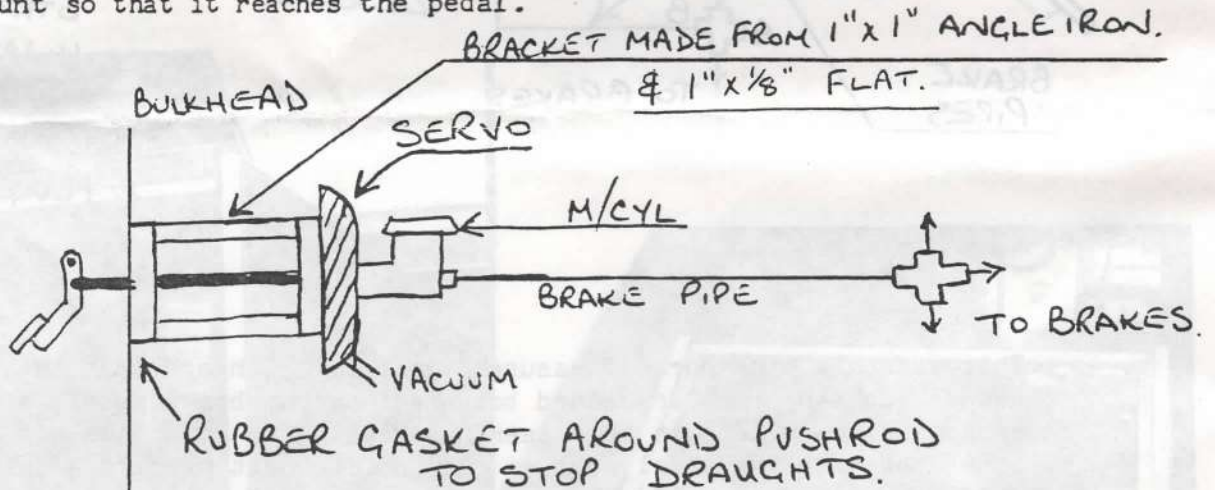 unt so that it reaches the pedal.
BRACKET MADE FROM 1"x 1" ANGLE IRON.
& 1"x 1/8" FLAT.
BULKHEAD
SERVO
M/CYL
BRAKE PIPE
TO BRAKES.
VACUUM
RUBBER GASKET AROUND PUSHROD
TO STOP DRAUGHTS.